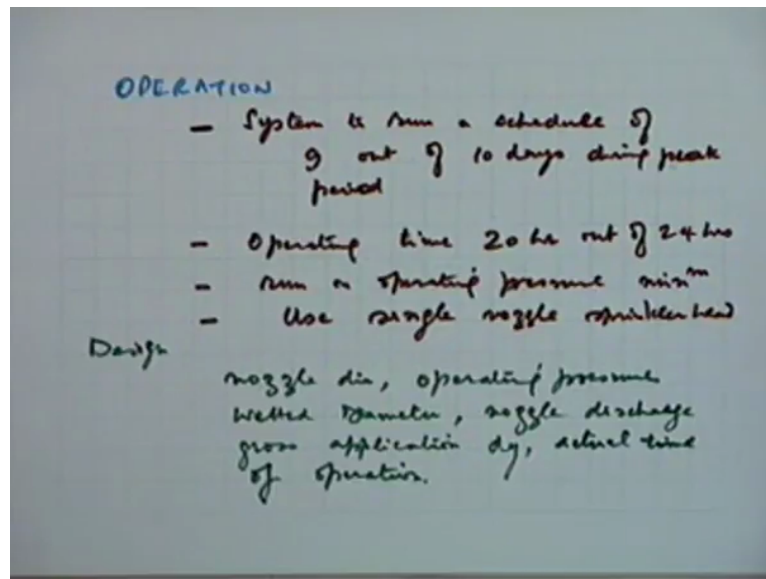 OPERATION
- System to run a schedule of
9 out of 10 days during peak
period
- Operating time 20 hr out of 24 hrs
- run on operating pressure minm
- Use single nozzle sprinkler head
Design
nozzle dia, operating pressure
wetted Diameter, nozzle discharge
gross application dg, actual time
of operation.